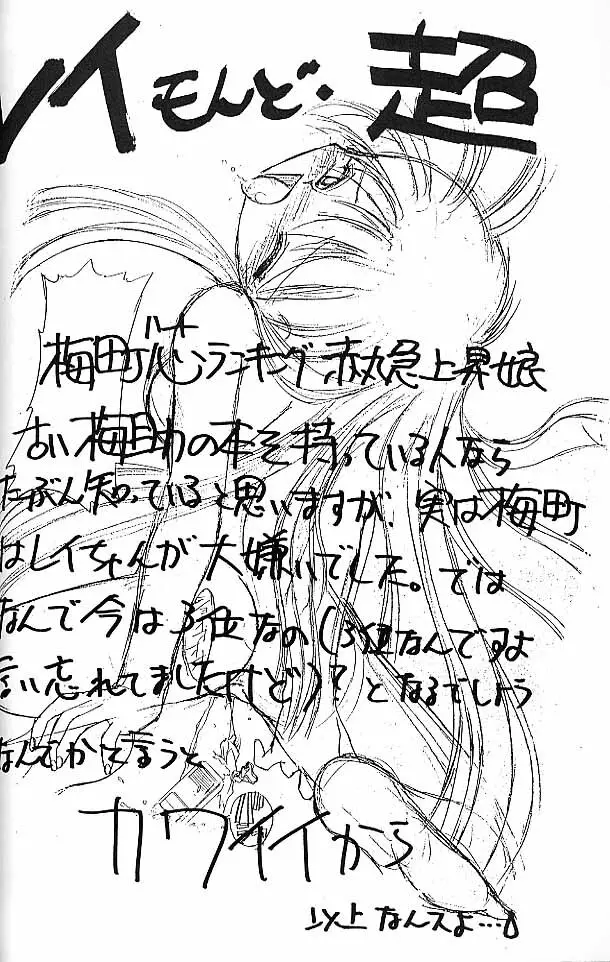 レイもんど・超
梅町心ハートランキング赤丸急上昇娘
古い梅町の本を持っている人なら
たぶん知っていると思いますが、実は梅町
はレイちゃんが大嫌いでした。では
なんで今は3位なの(3位なんですよ
言い忘れてましたけど)?となるでしょう
なんでかと言うと
カワイイから
以上なんスよ…